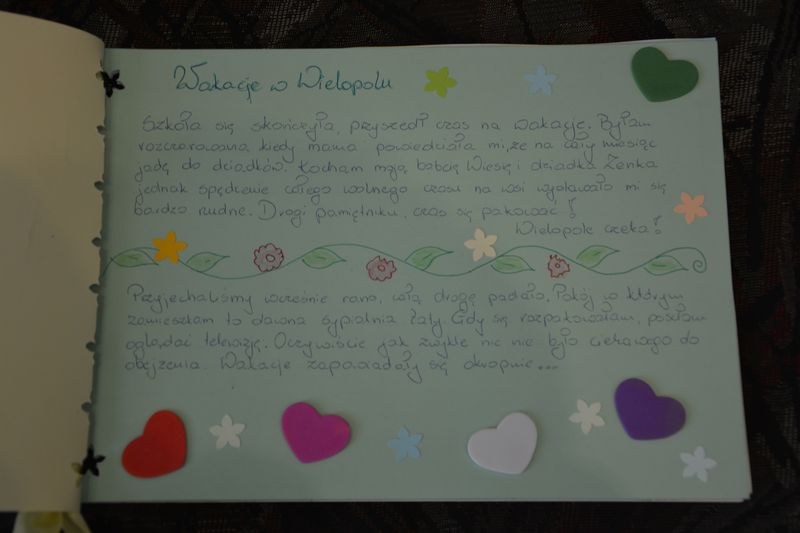 Wakacje w Wielopolu
Szkoła się skończyła, przyszedł czas na wakacje. Byłam
rozczarowana, kiedy mama powiedziała mi, że na cały miesiąc
jadę do dziadków. Kocham moją babcię Wiesię i dziadka Zenka
jednak spędzenie całego wolnego czasu na wsi wydawało mi się
bardzo nudne. Drogi pamiętniku, czas się pakować!
Wielopole czeka!
Przyjechaliśmy wcześnie rano, całą drogę padało. Pokój w którym
zamieszkam to dawna sypialnia taty. Gdy się rozpakowałam, poszłam
oglądać telewizję. Oczywiście jak zwykle nic nie było ciekawego do
obejrzenia. Wakacje zapowiadały się okropnie...